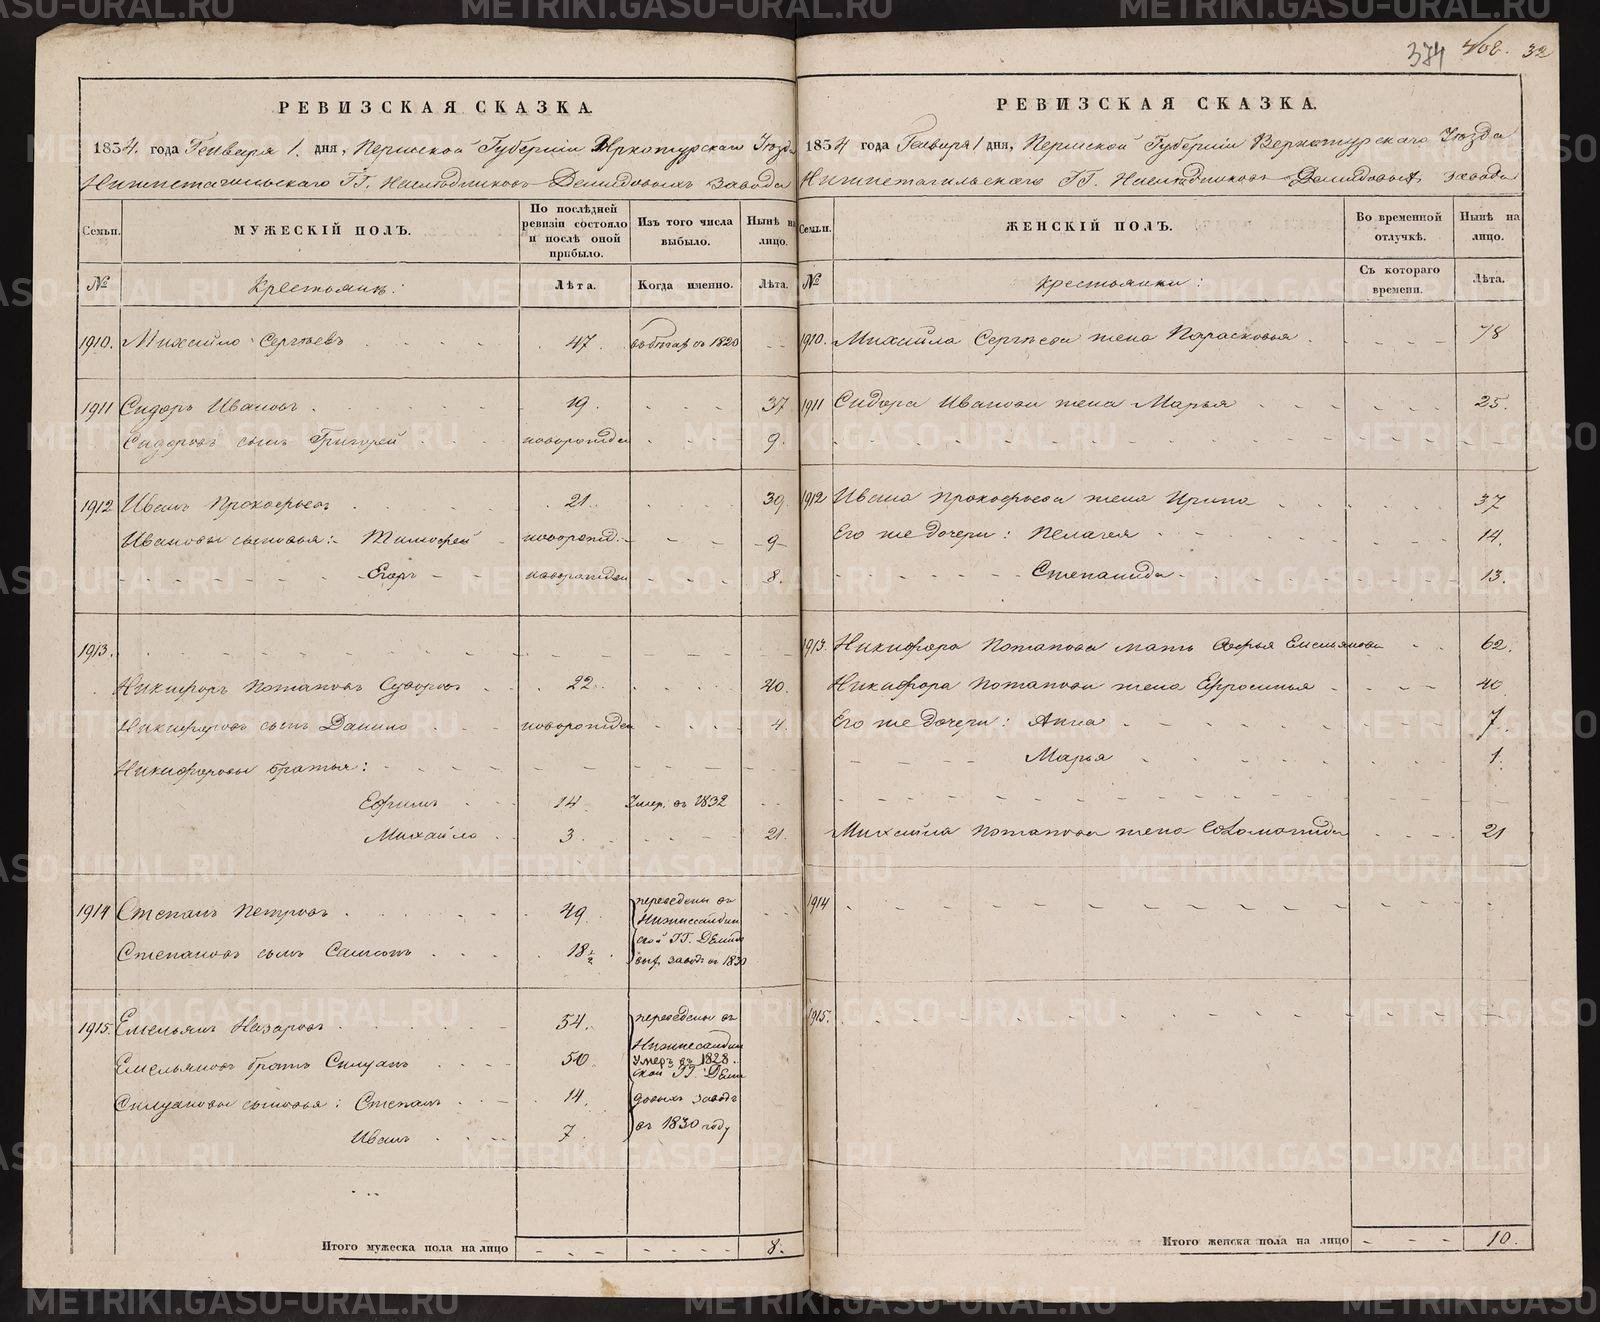 374 408. 32
РЕВИЗСКАЯ СКАЗКА.
1834. года Генваря 1. дня, Пермской Губернии Верхотурскаго Уѣзда
Нижнетагильскаго ГГ. Наслѣдниковъ Демидовыхъ завода
Семьи. МУЖЕСКІЙ ПОЛЪ. По послѣдней ревизіи состояло и послѣ оной прибыло. Изъ того числа выбыло. Нынѣ на лицо.
№ Крестьянъ: Лѣта. Когда именно. Лѣта.
1910. Михайло Сергѣевъ 47 въ бѣгах съ 1820
1911 Сидоръ Ивановъ 19. 37
Сидоровъ сынъ Григорей новорожден 9.
1912 Иванъ Прокофьевъ 21. 39.
Ивановы сыновья: Тимофей новорожд. 9
Егоръ новорожден 8.
1913.
Никифоръ Потаповъ Суворовъ 22. 40.
Никифоровъ сынъ Данило новорожден 4.
Никифоровы братья:
Ефимъ 14 Умер. въ 1832
Михайло 3. 21.
1914 Степанъ Петровъ 49. переведены въ
Нижнесалдин
Степановъ сынъ Самсонъ 18½. ской ГГ. Демид
вых. завод въ 1830
1915. Емельянъ Назаровъ 54. переведены въ
Нижнесалдин
Емельяновъ братъ Силуанъ 50. умеръ въ 1828.
ской ГГ. Деми
Силуановы сыновья: Степанъ 14. довыхъ заводъ
Иванъ 7. въ 1830 году
Итого мужеска пола на лицо 8.
РЕВИЗСКАЯ СКАЗКА.
1834 года Генваря 1 дня, Пермской Губернии Верхотурскаго Уѣзда
Нижнетагильскаго ГГ. Наслѣдниковъ Демидовых завода
Семьи. ЖЕНСКІЙ ПОЛЪ. Во временной отлучкѣ. Нынѣ на лицо.
№ Крестьянки: Съ котораго времени. Лѣта.
1910. Михайла Сергѣева жена Парасковья 78
1911 Сидора Иванова жена Марья 25.
1912 Ивана Прокофьева жена Ирина 37
Его же дочери: Пелагея 14.
Степанида 13.
1913. Никифора Потапова мать Софья Емельянова 62.
Никифора Потапова жена Ефросинья 40
Его же дочери: Анна 7.
Марья 1.
Михайла Потапова жена Соломонида 21
1914
1915.
Итого женска пола на лицо 10.